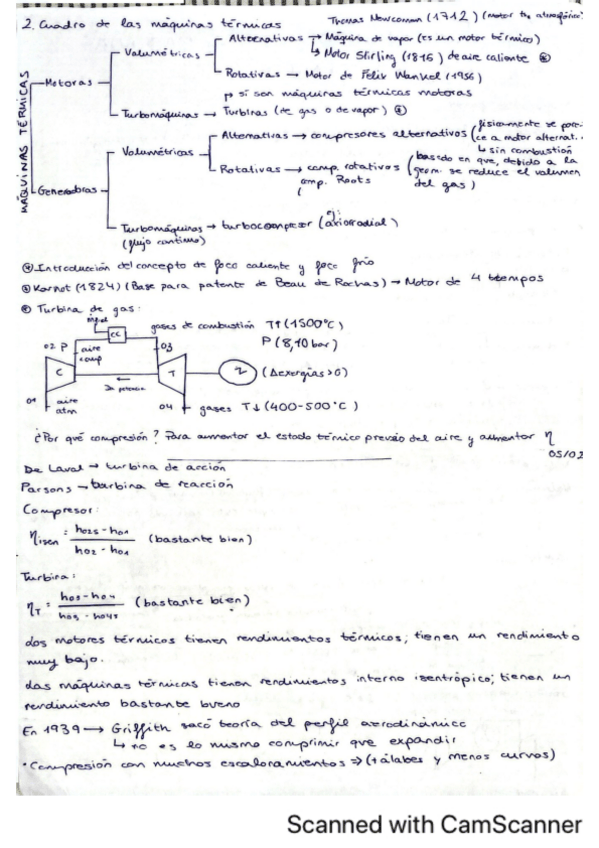 2. Cuadro de las máquinas térmicas
Thomas Newcomen (1712) (motor atmosférico)
MÁQUINAS TÉRMICAS
Motoras
Volumétricas
Alternativas → Máquina de vapor (es un motor térmico)
↳ Motor Stirling (1816) de aire caliente
Rotativas → Motor de Felix Wankel (1956)
↳ si son máquinas térmicas motoras
Turbomáquinas → Turbinas (de gas o de vapor)
Generadoras
Volumétricas
Alternativas → compresores alternativos (físicamente se parece a motor alternat..
↳ sin combustión
Rotativas → comp. rotativos (basado en que, debido a la
geom. se reduce el volumen
del gas)
comp. Roots
Turbomáquinas → turbocompresor (axiorradial)
(flujo continuo)
Introducción del concepto de foco caliente y foco frío
Karnot (1824) (Base para patente de Beau de Rochas) → Motor de 4 tiempos
Turbina de gas:
CC
gases de combustión T↑ (1500°C)
P (8,10 bar)
02 P
aire
comp
03
C
T
(Δexergías>0)
potencia
01
aire
atm
04
gases T↓ (400-500°C)
¿Por qué compresión? Para aumentar el estado térmico previo del aire y aumentar η
05/02
De Laval → turbina de acción
Parsons → turbina de reacción
Compresor:
ηisen = h02s - h01 / h02 - h01 (bastante bien)
Turbina:
ηT = h03 - h04 / h03 - h04s (bastante bien)
Los motores térmicos tienen rendimientos térmicos; tienen un rendimiento
muy bajo.
Las máquinas térmicas tienen rendimientos interno isentrópico; tienen un
rendimiento bastante bueno
En 1939 → Griffith sacó teoría del perfil aerodinámico
↳ no es lo mismo comprimir que expandir
• Compresión con muchos escalonamientos ⇒ (+ álabes y menos curvos)
Scanned with CamScanner